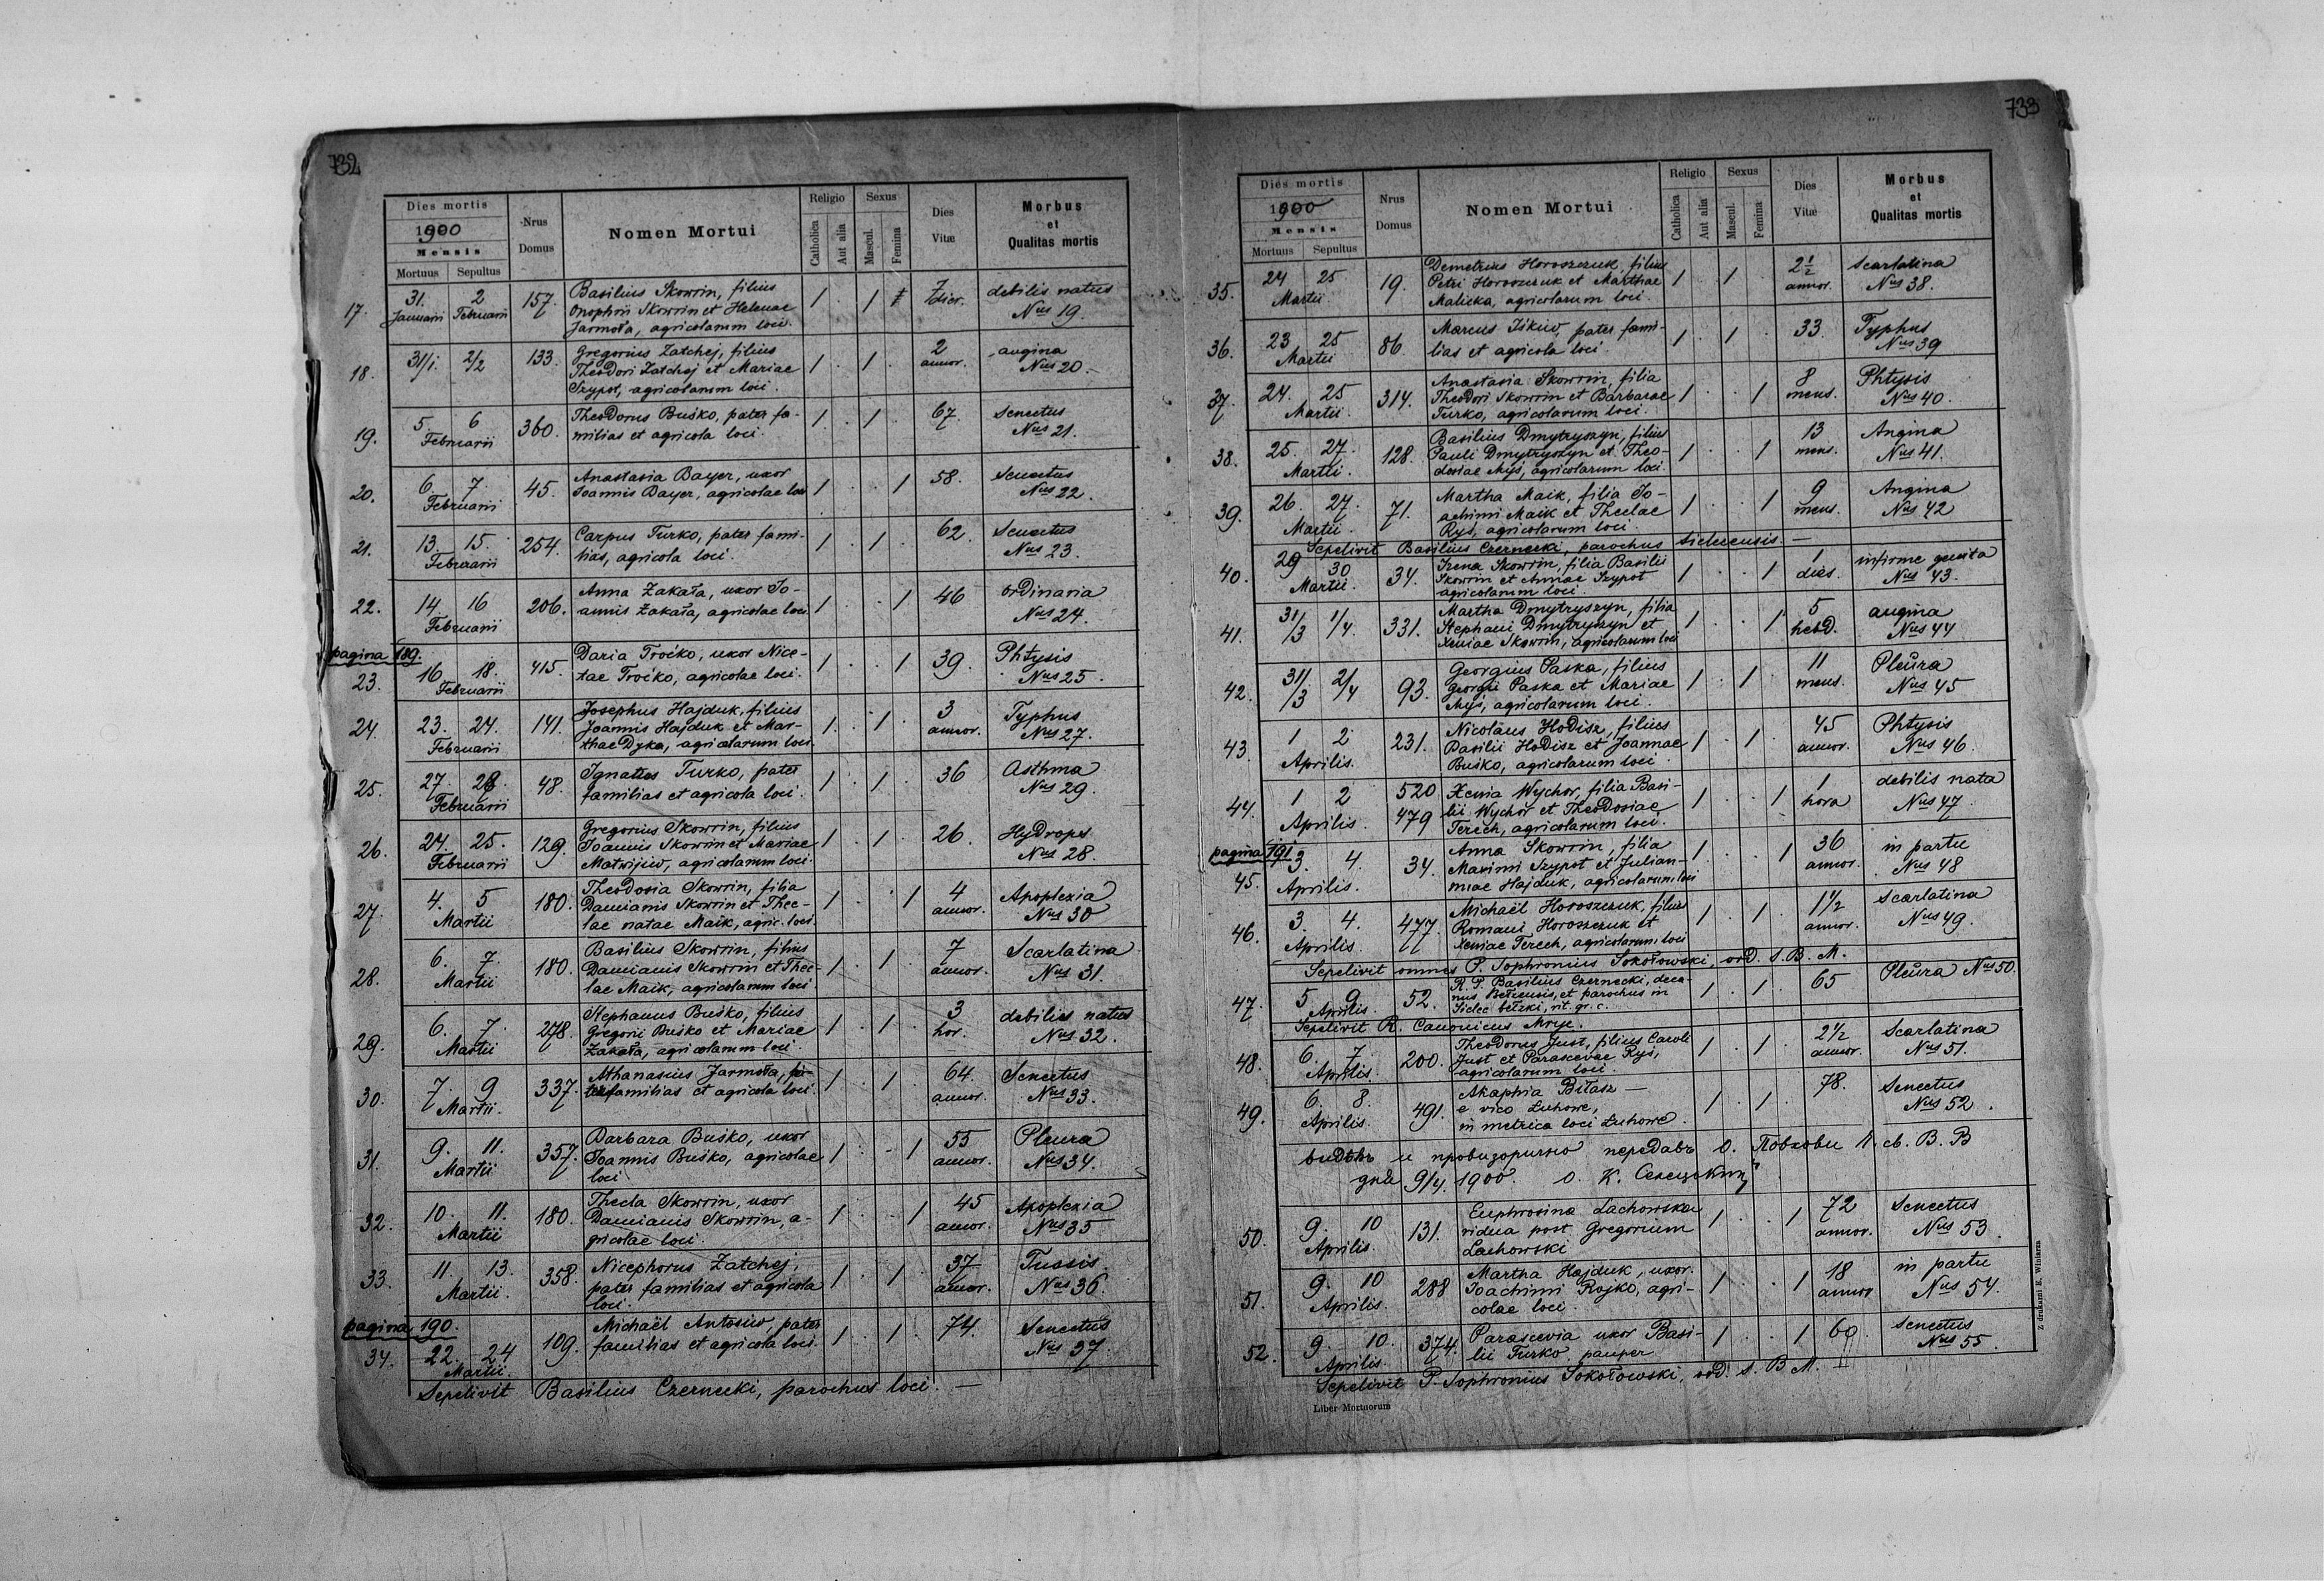 732
Dies mortis
1900
Mensis
Mortuus Sepultus
Nrus Domus
Nomen Mortui
Religio
Catholica Aut alia
Sexus
Mascul. Femina
Dies Vitæ
Morbus et Qualitas mortis
17. 31. Januarii 2 Februarii 157. Basilius Skowrin, filius
Onophrii Skowrin et Helenae
Jarmoła, agricolarum loci. 1 . 1 7 dier. debilis natus
Nus 19.
18. 31/1. 2/2 133. Gregorius Zatchej, filius
Theodori Zatchej et Mariae
Szypot, agricolarum loci. 1 . 1 . 2 annor. angina
Nus 20.
19. 5 6 Februarii 360. Theodorus Buśko, pater fa-
milias et agricola loci. 1 . 1 . 67 Senectus
Nus 21.
20. 6. 7. Februarii 45. Anastasia Bayer, uxor
Joannis Bayer, agricolae loci 1 . . 1 58. Senectus
Nus 22.
21. 13. 15. Februarii 254. Carpus Turko, pater fami-
lias, agricola loci. 1 . 1 . 62. Senectus
Nus 23.
22. 14. 16 Februarii 206. Anna Zakała, uxor Jo-
annis Zakała, agricolae loci. 1 . . 1 46 ordinaria
Nus 24.
pagina 189.
23. 16. 18. Februarii 415. Daria Troćko, uxor Nice-
tae Troćko, agricolae loci. 1 . . 1 39. Phtysis
Nus 25.
24. 23. 24. Februarii 141. Josephus Hajduk, filius
Joannis Hajduk et Mar-
thae Dyka, agricolarum loci. 1. . 1 . 3 annor. Typhus
Nus 27.
25. 27. 28. Februarii 48. Ignatius Turko, pater
familias et agricola loci. 1 . 1 . 36 Asthma
Nus 29.
26. 24. 25. Februarii 129. Gregorius Skowrin, filius
Joannis Skowrin et Mariae
Matwijiw, agricolarum loci. 1 . 1 . 26. Hydrops
Nus 28.
27. 4. 5 Martii 180. Theodosia Skowrin, filia
Damianis Skowrin et Thec-
lae natae Maik, agric. loci. 1 . . 1 4 annor. Apoplexia
Nus 30
28. 6. 7. Martii 180. Basilius Skowrin, filius
Damianis Skowrin et Thec-
lae Maik, agricolarum loci. 1 . 1 . 7 annor. Scarlatina
Nus 31.
29. 6. 7. Martii 278. Stephanus Buśko, filius
Gregorii Buśko et Mariae
Zakała, agricolarum loci. 1 . 1 . 3 hor. debilis natus
Nus 32.
30. 7. 9 Martii. 337. Athanasius Jarmoła, pa-
terfamilias et agricola loci. 1 . 1 . 64. annor. Senectus
Nus 33.
31. 9. 11. Martii 357. Barbara Buśko, uxor
Joannis Buśko, agricolae
loci. 1 . . 1 55 annor. Pleura
Nus 34.
32. 10. 11. Martii 180. Thecla Skowrin, uxor
Damianis Skowrin, a-
gricolae loci. 1 . . 1 45 annor. Apoplexia
Nus 35
33. 11. 13. Martii. 358. Nicephorus Zatchej,
pater familias et agricola
loci. 1 . 1 . 37 annor. Tussis.
Nus 36.
pagina 190.
34. 22. 24 Martii. 109. Michaël Antosiw, pater
familias et agricola loci. 1 . 1 . 74. Senectus
Nus 37.
Sepelivit Basilius Czernecki, parochus loci. —
733
Dies mortis
1900
Mensis
Mortuus Sepultus
Nrus Domus
Nomen Mortui
Religio
Catholica Aut alia
Sexus
Mascul. Femina
Dies Vitæ
Morbus et Qualitas mortis
35. 24 25 Martii 19. Demetrius Horoszczuk, filius
Petri Horoszczuk et Marthae
Malicka, agricolarum loci. 1 . 1 . 2 1/2 annor. Scarlatina
Nus 38.
36. 23 25 Martii 86. Marcus Iśkiw, pater fami-
lias et agricola loci. 1 . 1 . 33. Typhus
Nus 39
37. 24. 25 Martii. 314. Anastasia Skowrin, filia
Theodori Skowrin et Barbarae
Turko, agricolarum loci. 1 . . 1 8 mens. Phtysis
Nus 40.
38. 25. 27. Martii. 128. Basilius Dmytryszyn, filius
Pauli Dmytryszyn et Theo-
dosiae Myś, agricolarum loci. 1 . . 1 13 mens. Angina
Nus 41.
39. 26. 27. Martii 71. Martha Maik, filia Jo-
achimi Maik et Theclae
Ryś, agricolarum loci. 1 . . 1 9 mens. Angina
Nus 42
Sepelivit Basilius Czernecki, parochus sielecensis. —
40. 29 30 Martii. 34. Irena Skowrin, filia Basilii
Skowrin et Annae Szypot
agricolarum loci. 1 . . 1 1 dies. infirme genita
Nus 43.
41. 31/3 1/4. 331. Martha Dmytryszyn, filia
Stephani Dmytryszyn et
Xeniae Skowrin, agricolarum loci 1 . . 1 5 hebd. angina
Nus 44
42. 31/3 2/4 93. Georgius Paska, filius
Georgii Paska et Mariae
Myś, agricolarum loci. 1 . 1 . 11 mens. Pleura
Nus 45
43. 1 2 Aprilis. 231. Nicolaus Hodisz, filius
Basilii Hodisz et Joannae
Buśko, agricolarum loci. 1 . 1 45 annor. Phtysis
Nus 46.
44. 1 2 Aprilis. 520 479 Xenia Wychor, filia Basi-
lii Wychor et Theodosiae
Terech, agricolarum loci. 1 . . 1 1 hora debilis nata
Nus 47.
pagina 191.
45. 3. 4. Aprilis. 34. Anna Skowrin, filia
Maximi Szypot et Julian-
nae Hajduk, agricolarum loci 1 . . 1 36 annor. in partu
Nus 48
46. 3. 4. Aprilis. 477. Michaël Horoszczuk, filius
Romani Horoszczuk et
Xeniae Terech, agricolarum loci 1 . 1 . 1 1/2 annor. Scarlatina
Nus 49.
Sepelivit omnes P. Sophronius Sokołowski, ord. S. B. M.
47. 5 9 Aprilis 52. R. P. Basilius Czernecki, deca-
nus Bełzensis, et parochus in
Sielec bełzki, rit. gr. c. 1 . 1 . 65 Pleura Nus 50.
Sepelivit R. Canonicus
48. 6. 7. Aprilis. 200. Theodorus Just, filius Caroli
Just et Parascevae Ryś,
agricolarum loci. 1 . 1 . 2 1/2 annor. Scarlatina
Nus 51.
49. 6. 8. Aprilis. 491. Akaphia Biłasz —
e vico Łuhowe,
in metrica loci Łuhowe. 1 . 1 . 78. Senectus
Nus 52.
видѣвъ и провизорично передавъ о. Ч. св. В. В
дня 9/4. 1900. о. К. Селецкий
50. 9. 10 Aprilis. 131. Euphrosina Lachowska
vidua post Gregorium
Lachowski 1 . . 1 72 annor. Senectus
Nus 53.
51. 9. 10 Aprilis. 288 Martha Hajduk, uxor
Joachimi Rojko, agri-
colae loci. 1 . . 1 18 annor in partu
Nus 54.
52. 9. 10. Aprilis. 374. Parascevia uxor Basi-
lii Turko pauper 1 . . 1 60 Senectus
Nus 55.
Sepelivit P. Sophronius Sokołowski, ord. S. B. M.
Liber Mortuorum
Z drukarni E. Winiarza